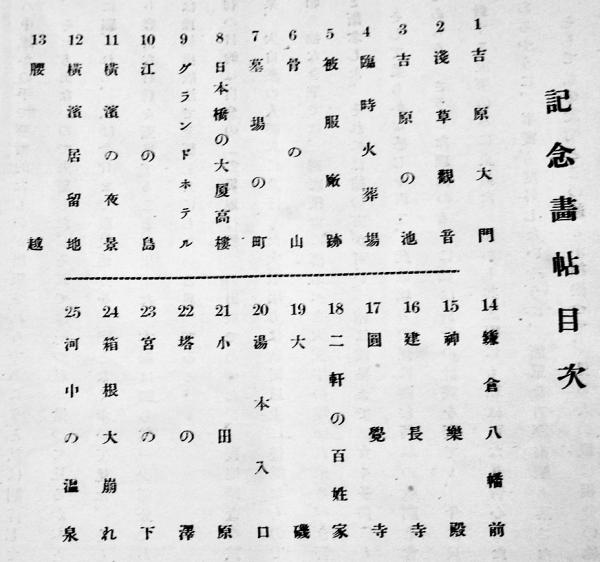 記念畫帖目次
1 吉原大門
2 淺草觀音
3 吉原の池
4 臨時火葬場
5 被服廠跡
6 骨の山
7 墓場の町
8 日本橋の大厦高樓
9 グランドホテル
10 江の島
11 橫濱の夜景
12 橫濱居留地
13 腰越
14 鎌倉八幡前
15 神樂殿
16 建長寺
17 圓覺寺
18 二軒の百姓家
19 大磯
20 湯本入口
21 小田原
22 塔の澤
23 宮の下
24 箱根大崩れ
25 河中の溫泉